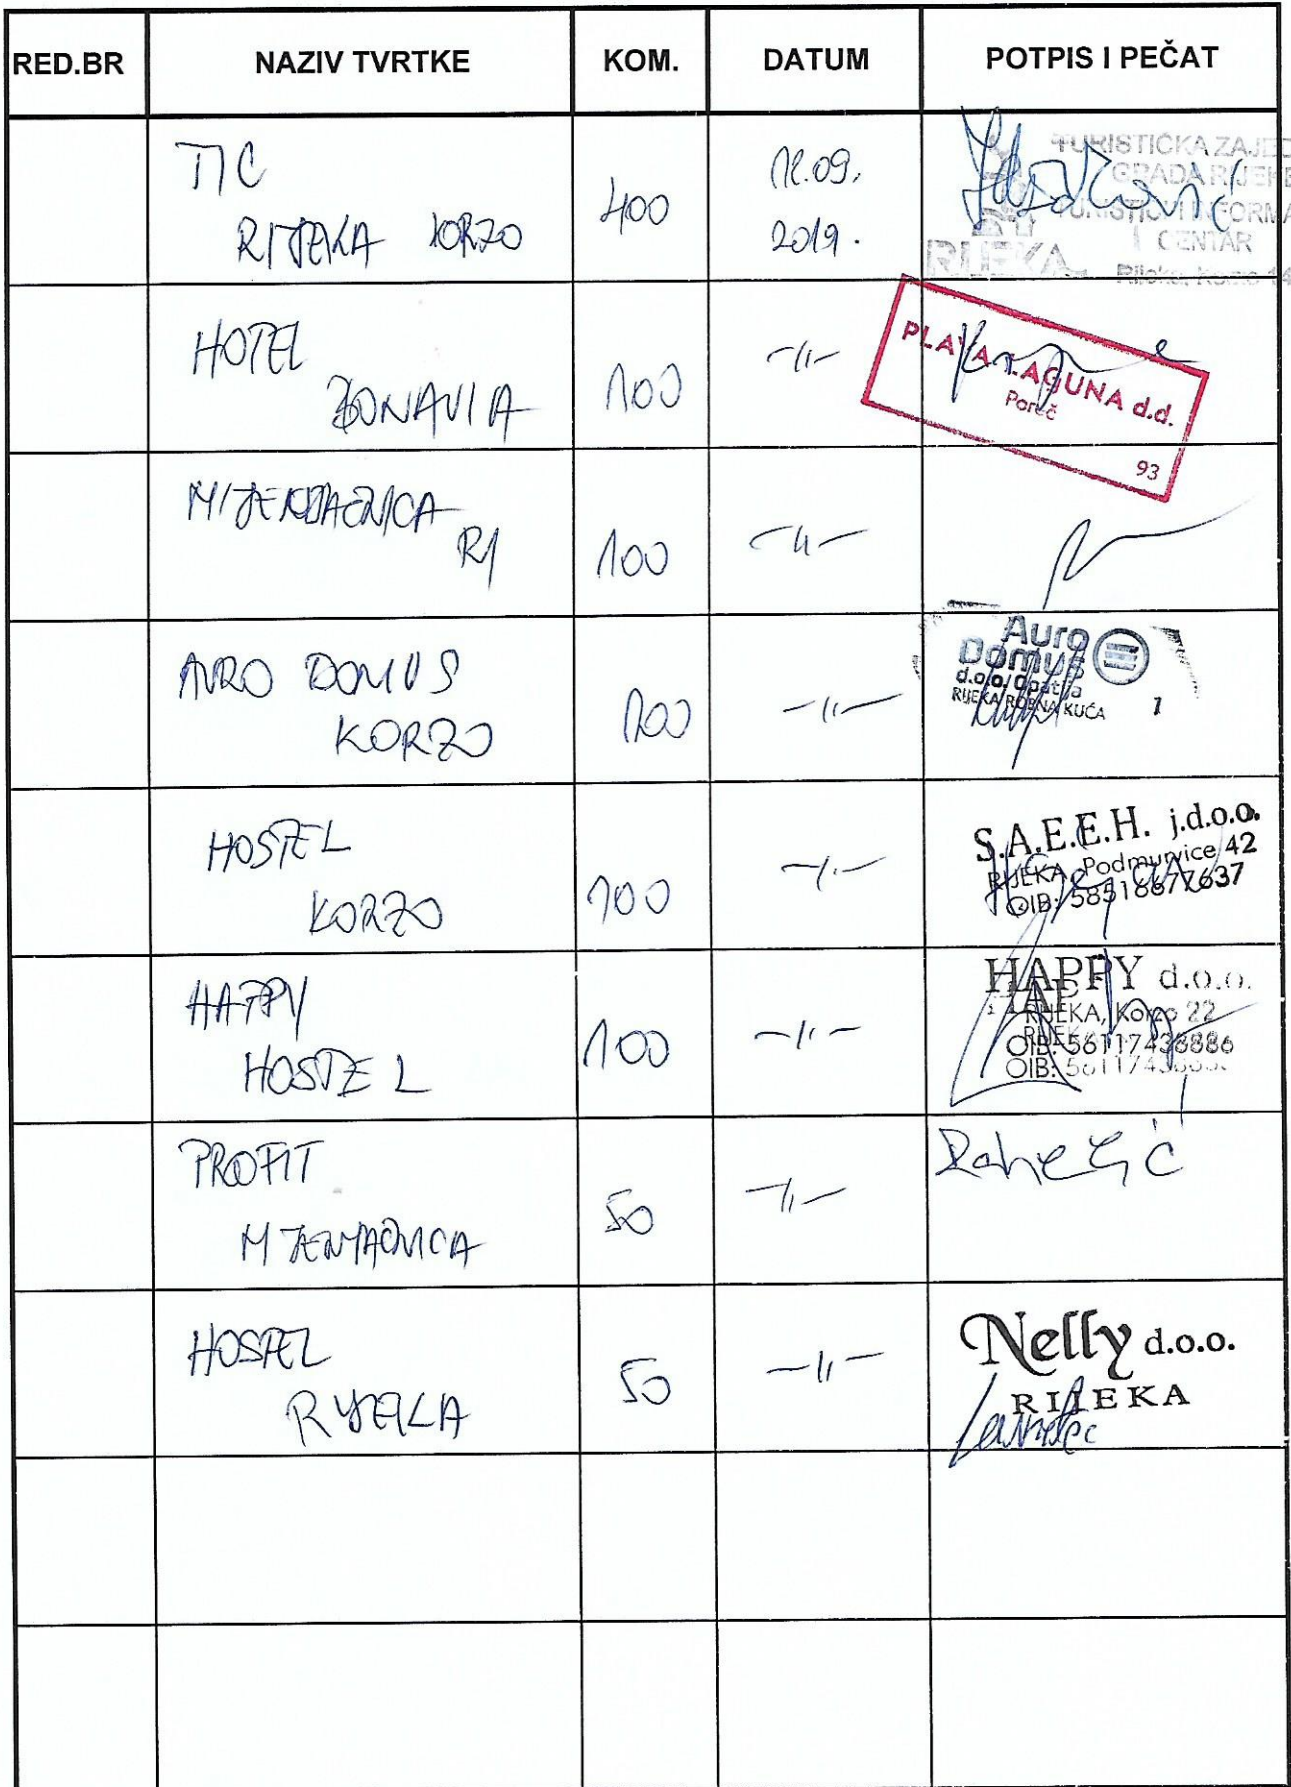 RED.BR NAZIV TVRTKE KOM. DATUM POTPIS I PEČAT
TIC
RIJEKA KORZO
400
2019.
TURISTIČKA ZAJED
GRADA RIJEKE
TURISTIČKI INFORMA
CENTAR
RIJEKA
Rijeka, Korzo 14
HOTEL
BONAVIA
100
-II-
PLAVA LAGUNA d.d.
Poreč
93
MJENJAČNICA
RI
100
-II-
AURO DOMUS
KORZO
100
-II-
Auro
Domus
d.o.o. Opatija
RIJEKA ROBNA KUĆA 1
HOSTEL
KORZO
100
-II-
S.A.E.E.H. j.d.o.o.
RIJEKA, Podmurvice 42
OIB: 58516677637
HAPPY
HOSTEL
100
-II-
HAPPY d.o.o.
RIJEKA, Korzo 22
OIB: 56117436886
OIB:
PROFIT
MJENJAČNICA
50
-II-
HOSTEL
RIJEKA
50
-II-
Nelly d.o.o.
RIJEKA